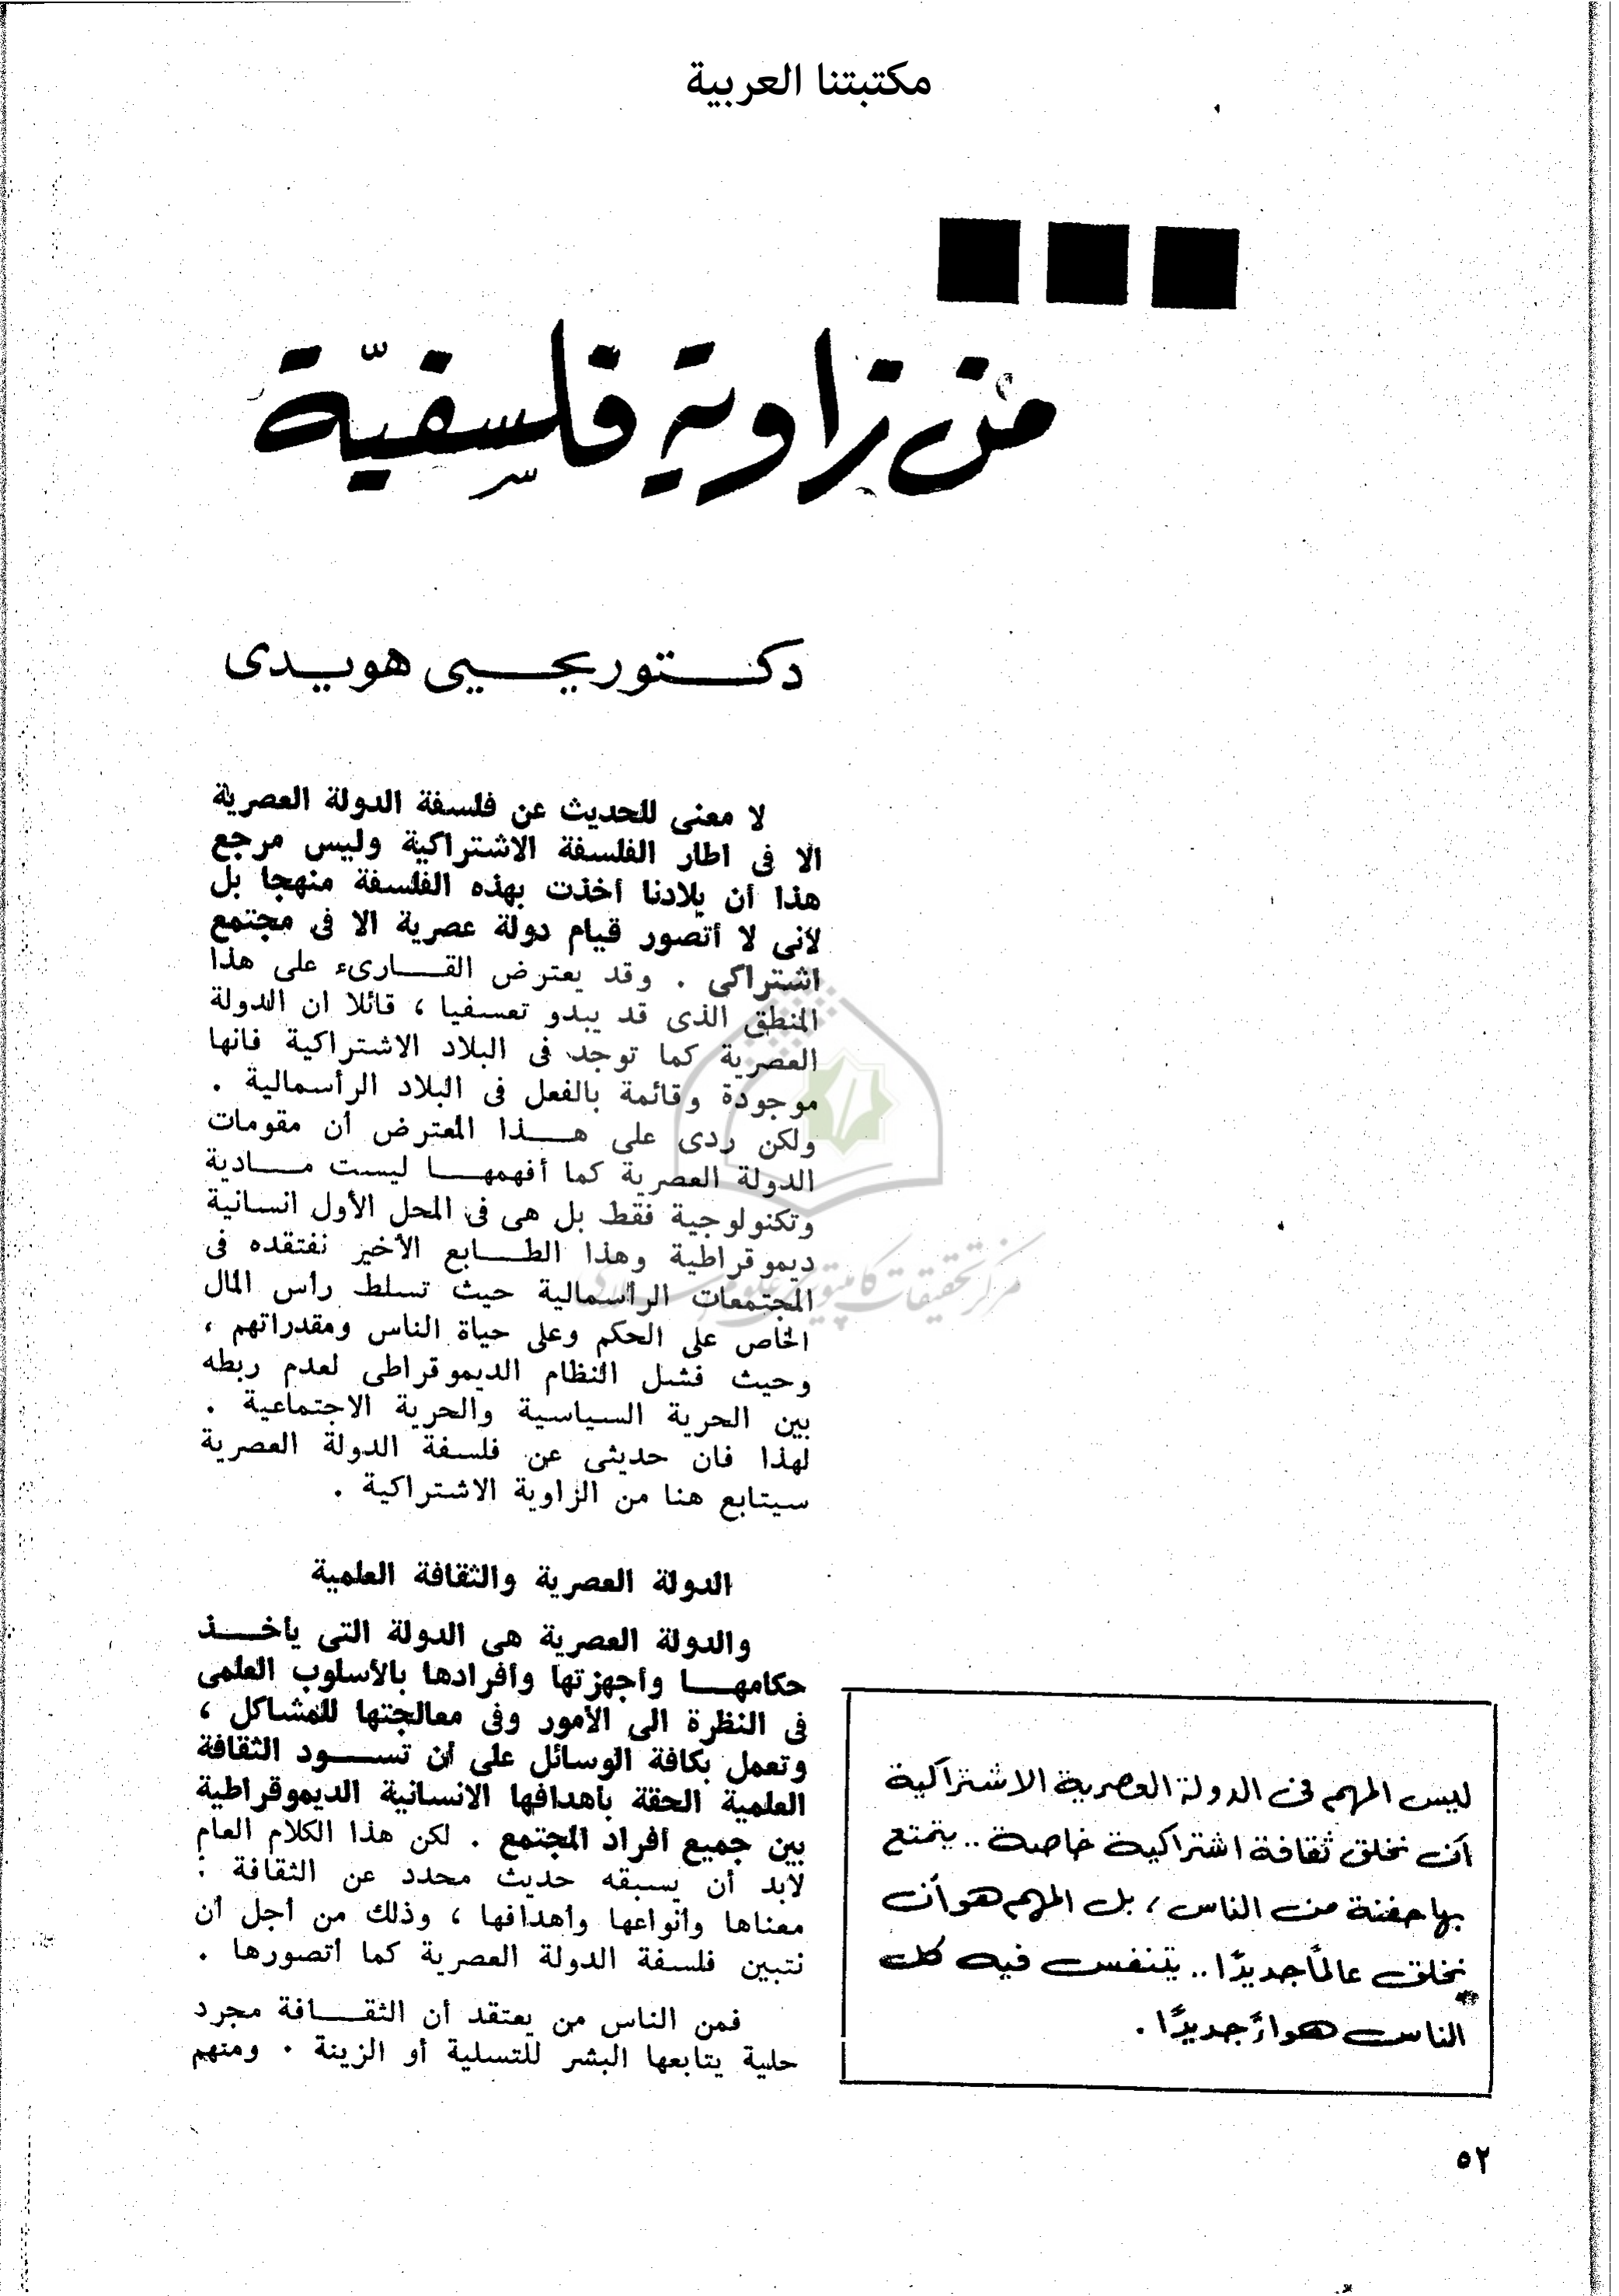 مكتبتنا العربية
من زاوية فلسفيّة
دكتور يحيى هويدى
لا معنى للحديث عن فلسفة الدولة العصرية
الا فى اطار الفلسفة الاشتراكية وليس مرجع
هذا أن بلادنا أخذت بهذه الفلسفة منهجا بل
لأنى لا أتصور قيام دولة عصرية الا فى مجتمع
اشتراكى . وقد يعترض القارىء على هذا
المنطق الذى قد يبدو تعسفيا ، قائلا ان الدولة
العصرية كما توجد فى البلاد الاشتراكية فانها
موجودة وقائمة بالفعل فى البلاد الرأسمالية .
ولكن ردى على هذا المعترض أن مقومات
الدولة العصرية كما أفهمها ليست مادية
وتكنولوجية فقط بل هى فى المحل الأول انسانية
ديموقراطية وهذا الطابع الأخير نفتقده فى
المجتمعات الرأسمالية حيث تسلط رأس المال
الخاص على الحكم وعلى حياة الناس ومقدراتهم ،
وحيث فشل النظام الديموقراطى لعدم ربطه
بين الحرية السياسية والحرية الاجتماعية .
لهذا فان حديثى عن فلسفة الدولة العصرية
سيتابع هنا من الزاوية الاشتراكية .
الدولة العصرية والثقافة العلمية
والدولة العصرية هى الدولة التى يأخذ
حكامها وأجهزتها وأفرادها بالأسلوب العلمى
فى النظرة الى الأمور وفى معالجتها للمشاكل ،
وتعمل بكافة الوسائل على أن تسود الثقافة
العلمية الحقة بأهدافها الانسانية الديموقراطية
بين جميع أفراد المجتمع . لكن هذا الكلام العام
لابد أن يسبقه حديث محدد عن الثقافة :
معناها وأنواعها وأهدافها ، وذلك من أجل أن
نتبين فلسفة الدولة العصرية كما أتصورها .
فمن الناس من يعتقد أن الثقافة مجرد
حلية يتابعها البشر للتسلية أو الزينة . ومنهم
ليس المهم فى الدولة العصرية الاشتراكية
أن نخلق ثقافة اشتراكية خاصة .. يتمتع
بها حفنة من الناس ، بل المهم هو أن
نخلق عالمًا جديدًا .. يتنفس فيه كل
الناس هواءً جديدًا .
٥٢
مركز تحقيقات كامپيوتری علوم اسلامی